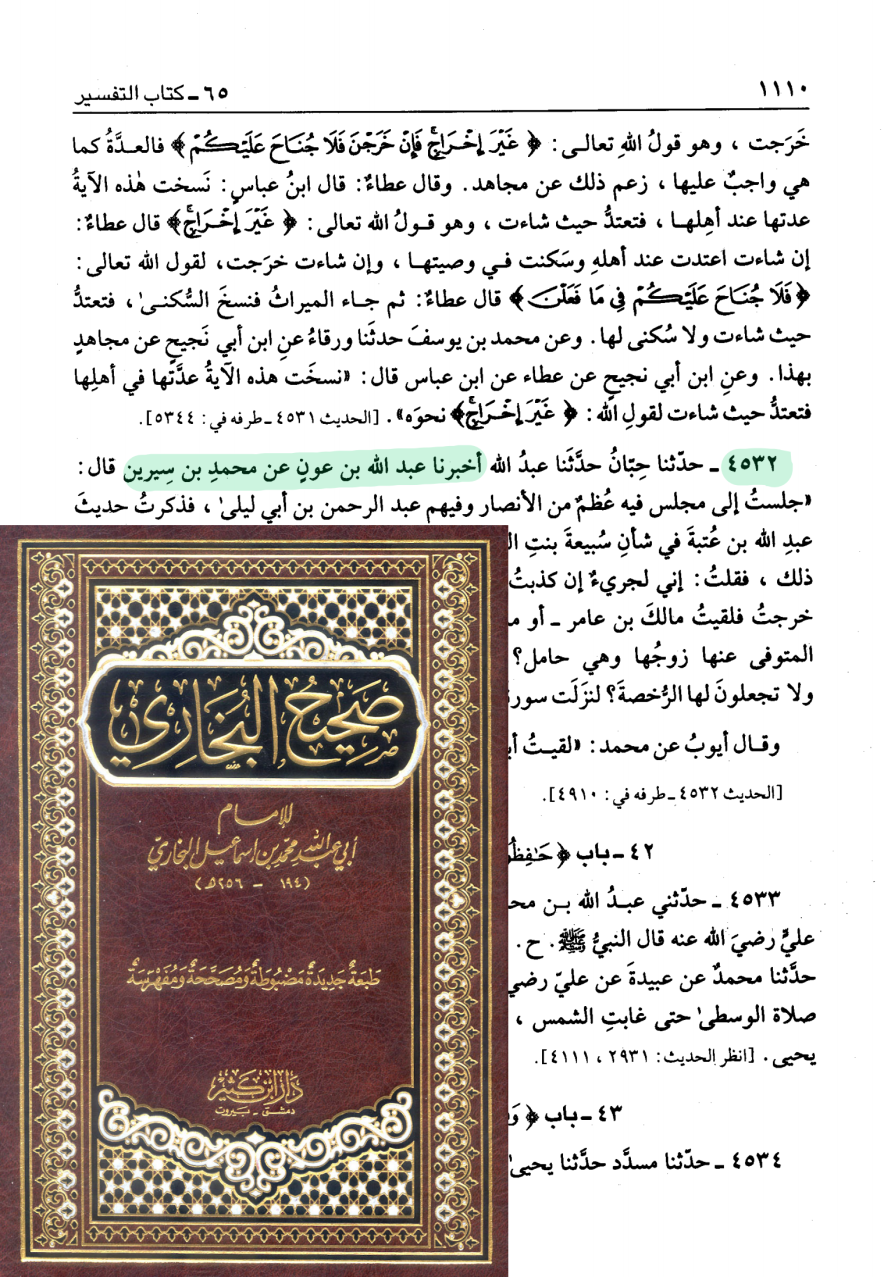 ١١١٠
٦٥ ـ كتاب التفسير
خَرَجت ، وهو قولُ اللهِ تعالى : ﴿ غَيْرَ إِخْرَاجٍ فَإِنْ خَرَجْنَ فَلَا جُنَاحَ عَلَيْكُمْ ﴾ فالعدَّةُ كما
هي واجبٌ عليها ، زعم ذلك عن مجاهد. وقال عطاءٌ: قال ابنُ عباسٍ: نَسخت هٰذه الآيةُ
عدتها عند أهلِها ، فتعتدُّ حيث شاءت ، وهو قولُ الله تعالى: ﴿ غَيْرَ إِخْرَاجٍ ﴾ قال عطاءٌ:
إن شاءت اعتدت عند أهلهِ وسَكنت في وصيتها ، وإن شاءت خرَجت، لقول الله تعالى:
﴿ فَلَا جُنَاحَ عَلَيْكُمْ فِي مَا فَعَلْنَ ﴾ قال عطاءٌ: ثم جاء الميراثُ فنسخَ السُّكنىٰ ، فتعتدُّ
حيث شاءت ولا سُكنى لها. وعن محمد بن يوسفَ حدثَنا ورقاءُ عنِ ابن أبي نَجيحٍ عن مجاهدٍ
بهذا. وعنِ ابن أبي نجيحٍ عن عطاء عن ابن عباس قال: «نسخَت هذه الآيةُ عدَّتها في أهلِها
فتعتدُّ حيث شاءت لقولِ الله: ﴿ غَيْرَ إِخْرَاجٍ ﴾ نحوَه». [الحديث ٤٥٣١ ـ طرفه في: ٥٣٤٤].
٤٥٣٢ ـ حدّثنا حِبّانُ حدَّثَنا عبدُ الله أخبرنا عبد الله بن عونٍ عن محمدِ بن سِيرين قال:
«جلستُ إلى مجلس فيه عُظمٌ من الأنصار وفيهم عبد الرحمن بن أبي ليلىٰ ، فذكرتُ حديثَ
عبدِ الله بن عُتبةَ في شأنِ سُبيعةَ بنتِ
ذلك ، فقلتُ: إني لجريءٌ إن كذبتُ
خرجتُ فلقيتُ مالكَ بن عامر ـ أو
المتوفى عنها زوجُها وهي حامل؟
ولا تجعلونَ لها الرُّخصةَ؟ لنزَلَت
وقال أيوبُ عن محمد: «لقيتُ
[الحديث ٤٥٣٢ ـ طرفه في: ٤٩١٠].
٤٢ ـ باب ﴿
٤٥٣٣ ـ حدّثني عبدُ الله بن
عليٍّ رضيَ الله عنه قال النبيُّ ﷺ. ح.
حدَّثنا محمدٌ عن عبيدةَ عن عليّ
صلاة الوسطىٰ حتى غابتِ الشمس ،
يحيى. [انظر الحديث: ٢٩٣١ ، ٤١١١].
٤٣ ـ باب ﴿
٤٥٣٤ ـ حدّثنا مسدَّد حدَّثنا يحيىٰ
صَحِيحُ البُخَارِي
للإمام
أبي عبد الله محمد بن اسماعيل البخاريّ
(١٩٤ - ٢٥٦ هـ)
طَبعَةٌ جَديدَةٌ مَضبُوطَةٌ وَمُصَحَّحَةٌ وَمُفَهْرَسَةٌ
دَارُ ابْن كَثير
دمشق - بيروت